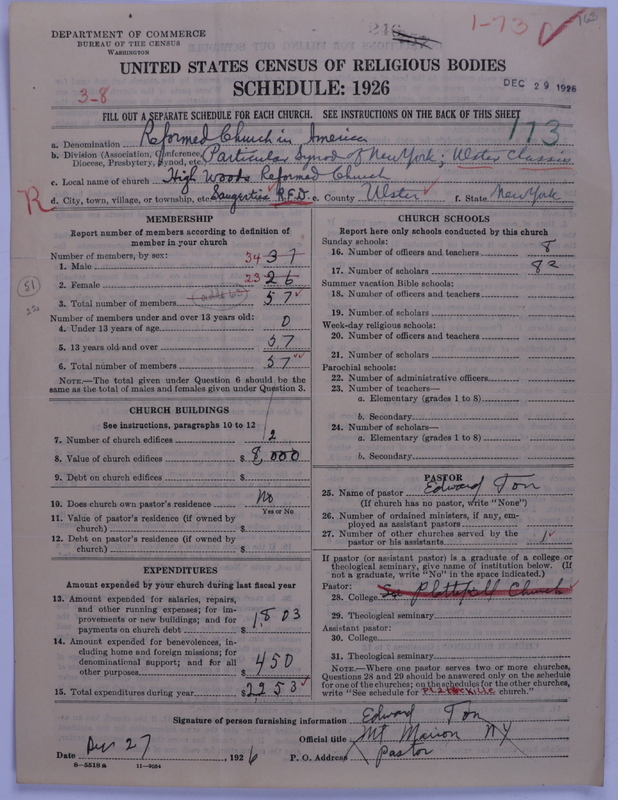 1-73
763
246
DEPARTMENT OF COMMERCE
BUREAU OF THE CENSUS
WASHINGTON
UNITED STATES CENSUS OF RELIGIOUS BODIES
SCHEDULE: 1926
DEC 29 1926
3-8
FILL OUT A SEPARATE SCHEDULE FOR EACH CHURCH. SEE INSTRUCTIONS ON THE BACK OF THIS SHEET
173
a. Denomination Reformed Church in America
b. Division (Association, Conference, Diocese, Presbytery, Synod, etc. Particular Synod of New York; Ulster Classis
c. Local name of church High Woods Reformed Church
R
d. City, town, village, or township, etc. Saugerties R.F.D. e. County Ulster f. State New York
MEMBERSHIP
Report number of members according to definition of
member in your church
Number of members, by sex:
1. Male 34 31
2. Female 23 26
3. Total number of members 57
Number of members under and over 13 years old:
4. Under 13 years of age 0
5. 13 years old and over 57
6. Total number of members 57
51
NOTE.—The total given under Question 6 should be the
same as the total of males and females given under Question 3.
CHURCH BUILDINGS
See instructions, paragraphs 10 to 12
7. Number of church edifices 2
8. Value of church edifices $ 8,000
9. Debt on church edifices $
10. Does church own pastor's residence No
Yes or No
11. Value of pastor's residence (if owned by
church) $
12. Debt on pastor's residence (if owned by
church) $
EXPENDITURES
Amount expended by your church during last fiscal year
13. Amount expended for salaries, repairs,
and other running expenses; for im-
provements or new buildings; and for
payments on church debt $ 1803
14. Amount expended for benevolences, in-
cluding home and foreign missions; for
denominational support; and for all
other purposes 450
15. Total expenditures during year $ 2253
CHURCH SCHOOLS
Report here only schools conducted by this church
Sunday schools:
16. Number of officers and teachers 8
17. Number of scholars 82
Summer vacation Bible schools:
18. Number of officers and teachers
19. Number of scholars
Week-day religious schools:
20. Number of officers and teachers
21. Number of scholars
Parochial schools:
22. Number of administrative officers
23. Number of teachers—
a. Elementary (grades 1 to 8)
b. Secondary
24. Number of scholars—
a. Elementary (grades 1 to 8)
b. Secondary
PASTOR
25. Name of pastor Edward Ton
(If church has no pastor, write "None")
26. Number of ordained ministers, if any, em-
ployed as assistant pastors
27. Number of other churches served by the
pastor or his assistants 1
If pastor (or assistant pastor) is a graduate of a college or
theological seminary, give name of institution below. (If
not a graduate, write "No" in the space indicated.)
Pastor:
28. College See Plattekill Church
29. Theological seminary
Assistant pastor:
30. College
31. Theological seminary
NOTE.—Where one pastor serves two or more churches,
Questions 28 and 29 should be answered only on the schedule
for one of the churches; on the schedules for the other churches,
write "See schedule for church."
Signature of person furnishing information Edward Ton
Official title Mt Marion NY
Date Dec 27, 1926 P. O. Address Pastor
8-5518a 11-9054